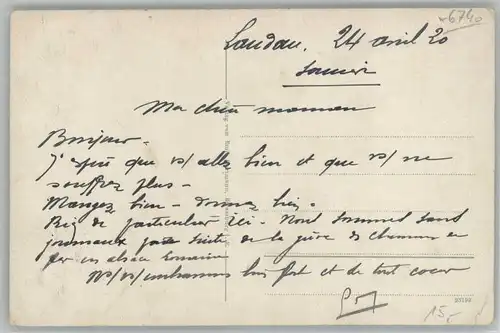 6740
Landau. 24 avril 20
Samedi
Ma chère maman
Bonjour.
J'espère que vs/ allez bien et que vs/ ne
souffrez plus.
Mangez bien - dormez bien.
Rien de particulier ici. Nous sommes sans
journaux par suite de la grève de chemins de
fer en alsace Lorraine
Ns/ vs/ embrassons bien fort et de tout coeur
15,-